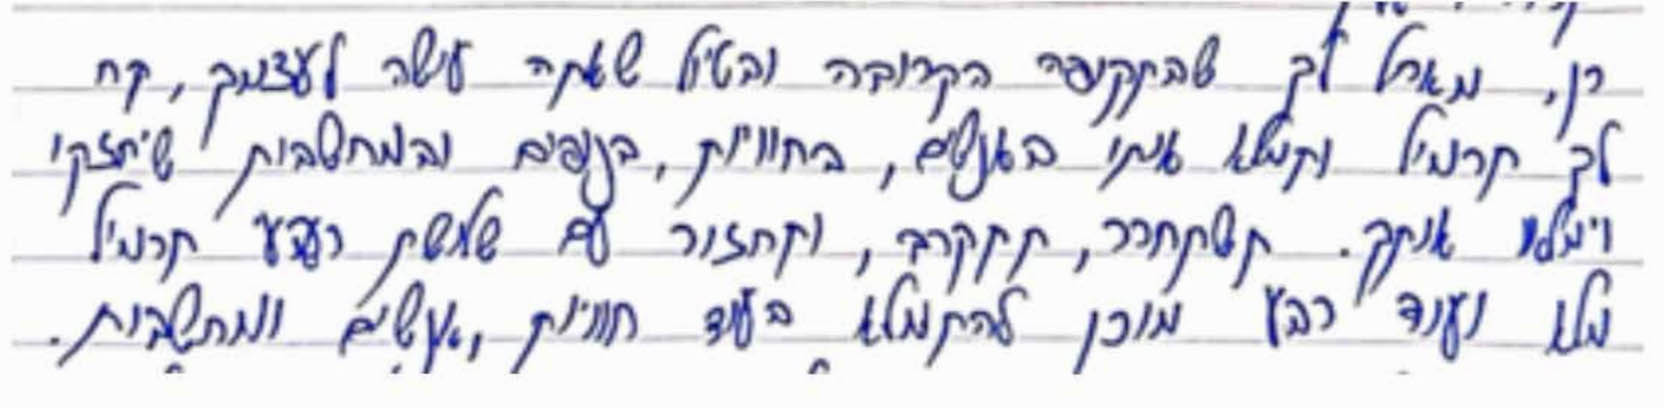 רן, מאחל לך שבתקופה הקרובה ובטיול שאתה עושה לעצמך, קח
לך תרמיל ותמלא אותו באנשים, בחוויות, בנופים ובמחשבות שיחזקו
וימלאו אותך. תשתחרר, תתקרב, ותחזור עם שלושת רבעי תרמיל
מלא ועוד רבע מוכן להתמלא בעוד חוויות, אנשים ומחשבות.